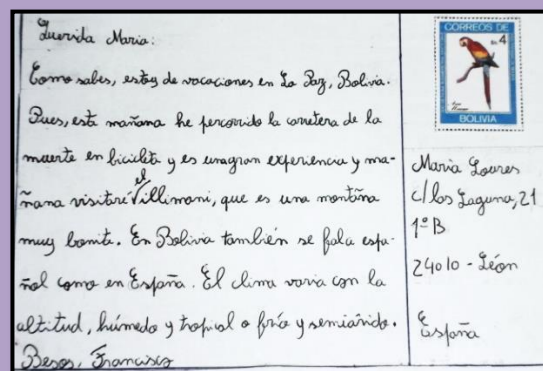 Querida Maria:
Como sabes, estoy de vacaciones en La Paz, Bolivia.
Pues, está mañana he percorrido la carretera de la
muerte en bicicleta y es una gran experiencia y ma-
ñana visitaré el Illimani, que es una montaña
muy bonita. En Bolivia también se fala espa-
ñol como en España. El clima varia con la
altitud, húmedo y tropical o frío y semiárido.
Besos, Francisco
CORREOS DE
Bs. 4
BOLIVIA
Maria Loures
c/ las Laguna, 21
1º B
24010 - León
España